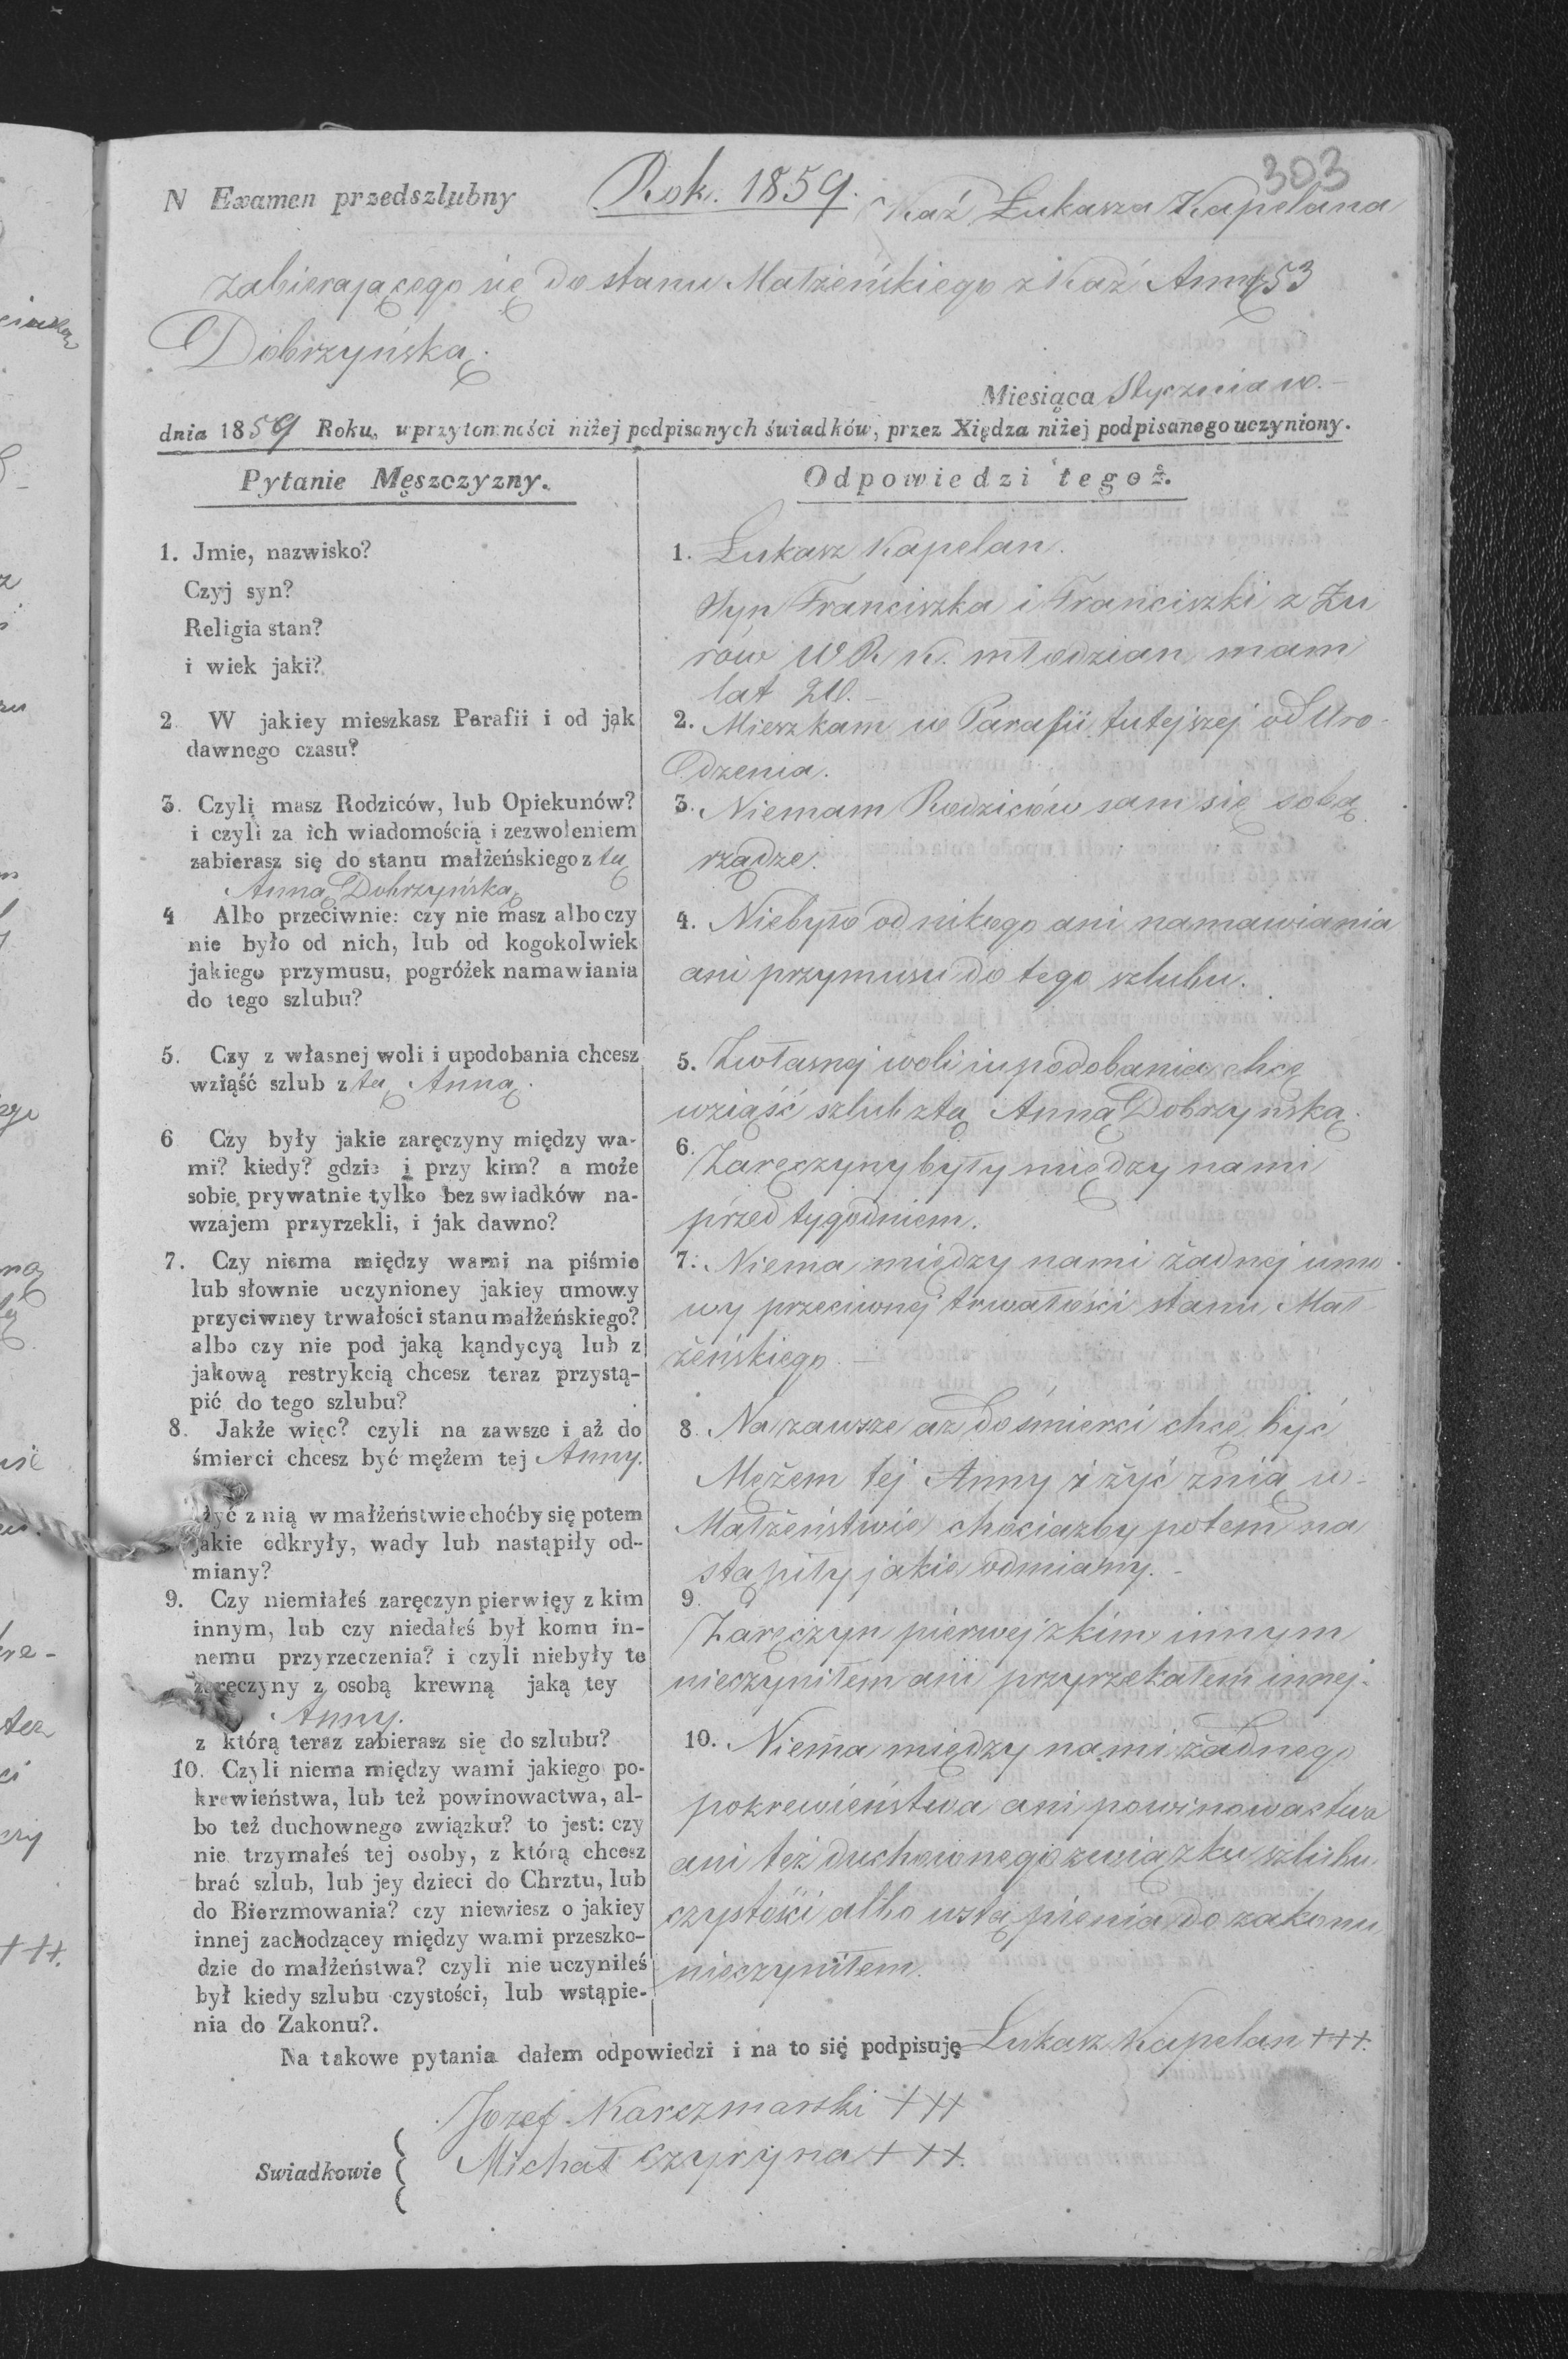 303
N Examen przedszlubny Rok. 1859. Kaź Łukasza Kapelana
zabierającego się do stanu Małżeńskiego z Kaź Anną 53
Dobrzyńską.
Miesiąca Stycznia w. –
dnia 1859 Roku, w przytomności niżej podpisanych świadków, przez Xiędza niżej podpisanego uczyniony.
Pytanie Męszczyzny.
1. Jmie, nazwisko?
Czyj syn?
Religia stan?
i wiek jaki?
2 W jakiey mieszkasz Parafii i od jak
dawnego czasu?
3. Czyli masz Rodziców, lub Opiekunów?
i czyli za ich wiadomością i zezwoleniem
zabierasz się do stanu małżeńskiego z tą
Anną Dobrzyńską
4 Albo przeciwnie: czy nie masz albo czy
nie było od nich, lub od kogokolwiek
jakiego przymusu, pogróżek namawiania
do tego szlubu?
5. Czy z własnej woli i upodobania chcesz
wziąść szlub z tą Anną.
6 Czy były jakie zaręczyny między wa-
mi? kiedy? gdzie i przy kim? a może
sobie prywatnie tylko bez swiadków na-
wzajem przyrzekli, i jak dawno?
7. Czy niema między wami na piśmie
lub słownie uczynioney jakiey umowy
przyciwney trwałości stanu małżeńskiego?
albo czy nie pod jaką kąndycyą lub z
jakową restrykcią chcesz teraz przystą-
pić do tego szlubu?
8. Jakże więc? czyli na zawsze i aż do
śmierci chcesz być mężem tej Anny.
żyć z nią w małżeństwie choćby się potem
jakie odkryły, wady lub nastąpiły od-
miany?
9. Czy niemiałeś zaręczyn pierwięy z kim
innym, lub czy niedałeś był komu in-
nemu przyrzeczenia? i czyli niebyły te
zaręczyny z osobą krewną jaką tey
Anny.
z którą teraz zabierasz się do szlubu?
10. Czyli niema między wami jakiego po-
krewieństwa, lub też powinowactwa, al-
bo też duchownego związku? to jest: czy
nie trzymałeś tej osoby, z którą chcesz
brać szlub, lub jey dzieci do Chrztu, lub
do Bierzmowania? czy niewiesz o jakiey
innej zachodzącey między wami przeszko-
dzie do małżeństwa? czyli nie uczyniłeś
był kiedy szlubu czystości, lub wstąpie-
nia do Zakonu?.
Odpowiedzi tegoż.
1. Łukasz Kapelan.
Syn Franciszka i Franciszki z Żu
rów W R K. młodzian mam
lat 20. –
2. Mieszkam w Parafii tutejszej od Uro-
dzenia.
3. Niemam Rodziców sam się sobą
rządze.
4. Niebyło od nikogo ani namawiania
ani przymusu do tego szlubu.
5. Zwłasnej woli i upodobania chcę
wziąść szlub z tą Anną Dobrzyńską.
6. Zaręczyny były między nami
przed tygodniem.
7. Niema między nami żadnej umo
wy przeciwnej trwałości stanu Mał
żeńskiego. –
8. Na zawsze aż do śmierci chcę być
Mężem tej Anny i żyć z nią w-
Małżeństwie chociażby potem na
stąpiły jakie odmiany. –
9.
Zaręczyn pierwej z kim innym
nieczyniłem ani przyrzekałem innej.
10. Niema między nami żadnego
pokrewieństwa ani powinowactwa
ani też duchownego związku szlubu
czystości albo wstąpienia do zakonu
nieczyniłem.
Na takowe pytania dałem odpowiedzi i na to się podpisuję Łukasz Kapelan +++.
Swiadkowie
Jozef Karczmarski +++
Michał Czyryna +++.